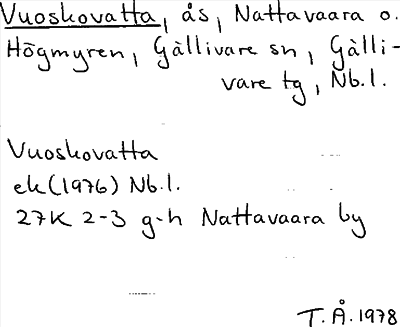 Vuoskovatta, ås, Nattavaara o.
Högmyren, Gällivare sn, Gälli-
vare tg, Nb.l.
Vuoskovatta
ek (1976) Nb.l.
27K 2-3 g-h Nattavaara by
T.Å. 1978